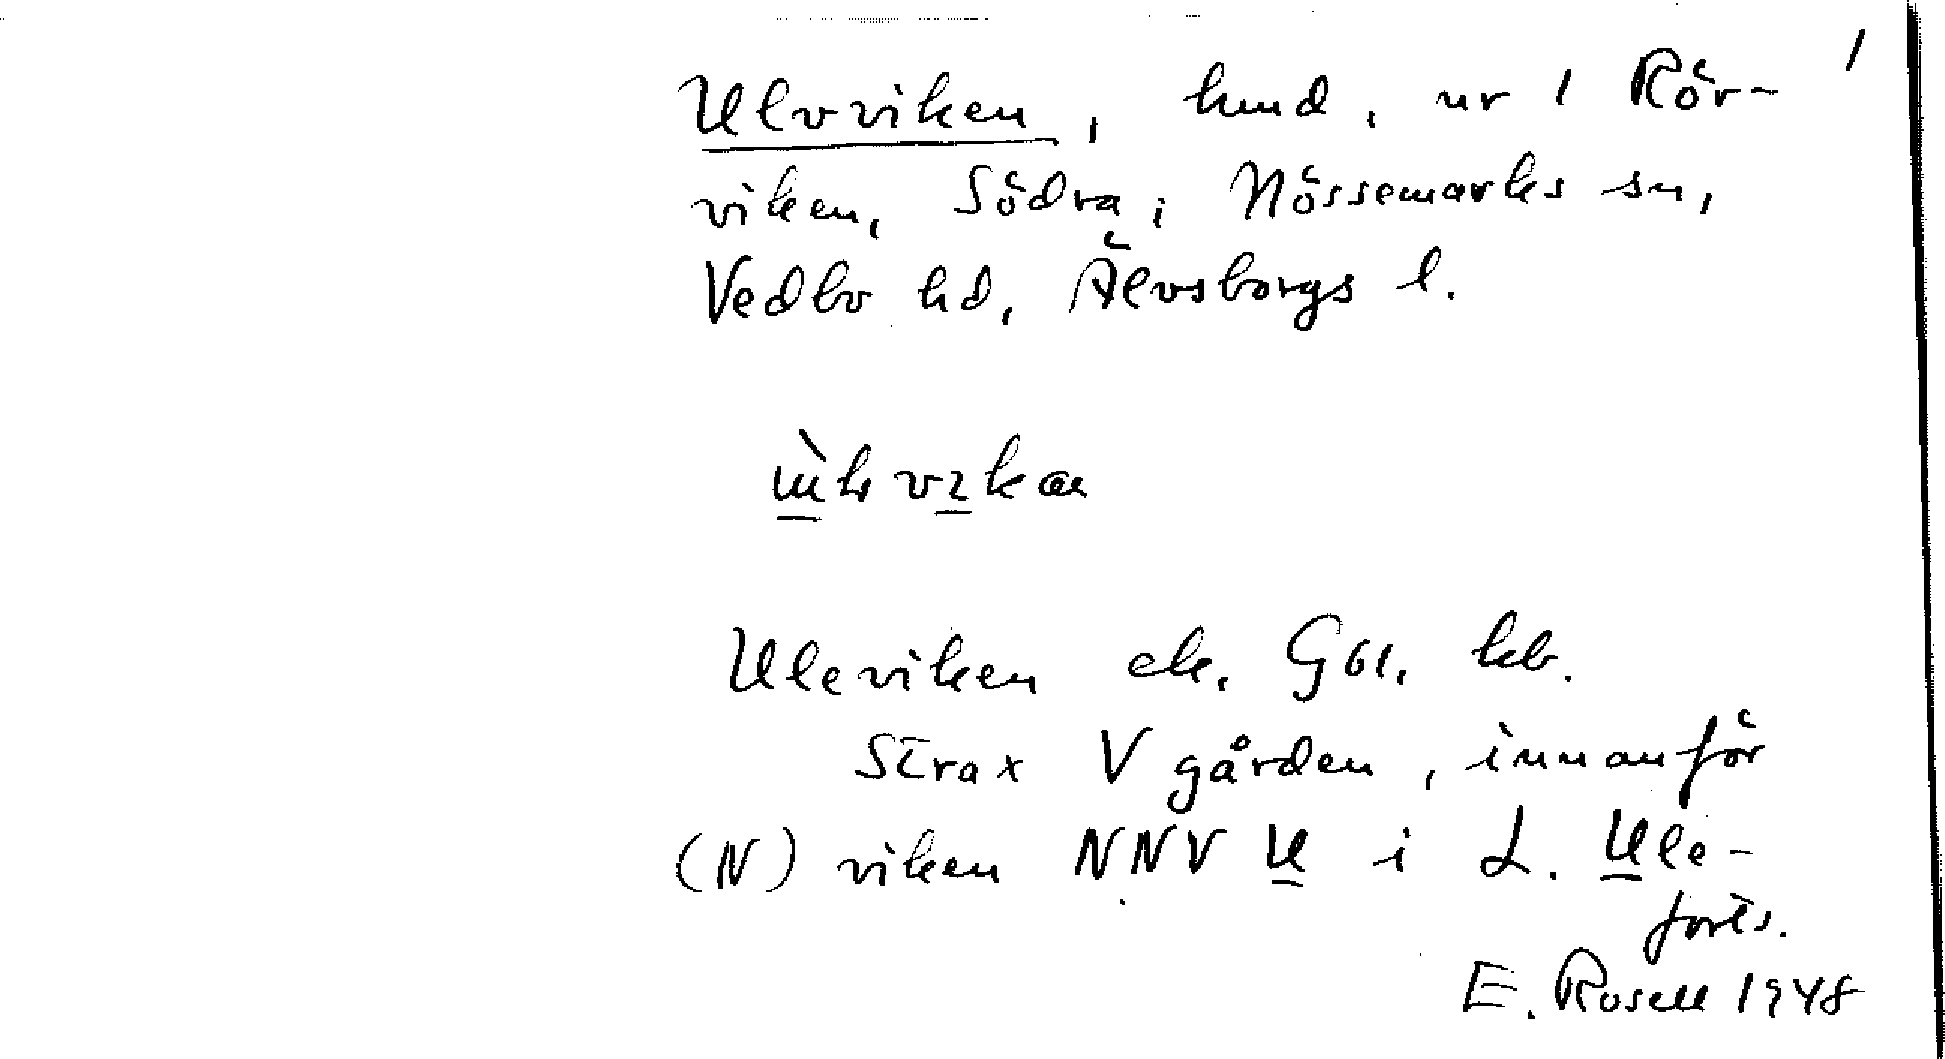 1
Ulvviken, hmd, nr 1 Rör-
viken, Södra; Nössemarks sn,
Vedbo hd, Älvsborgs l.
Uleviken ek. Gst. kb.
Strax V gården, innanför
(N) viken NNV U i L. Ule-
forts.
E. Rosell 1948